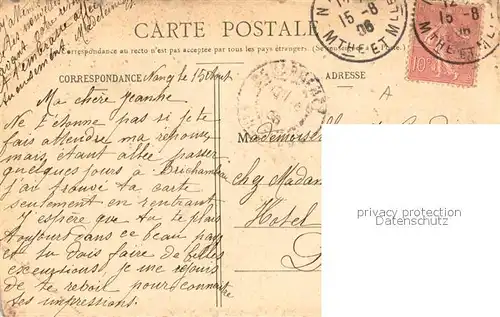 CARTE POSTALE
(La Correspondance au recto n'est pas acceptée par tous les pays étrangers. (Se renseigner à la Poste.)
CORRESPONDANCE
ADRESSE
Nancy le 15 Août
Ma chère Jeanne
Ne t'étonne pas si je te
fais attendre ma réponse
mais étant allée passer
quelques jours à Brichambeau
j'ai trouvé ta carte
seulement en rentrant
J'espère que tu te plais
toujours dans ce beau pays
et tu dois faire de belles
excursions, je me réjouis
de te revoir pour connaître
tes impressions.
Madeleine
Mademoiselle
chez Madame
Hôtel
privacy protection
Datenschutz
15-8
06
MTHE-ET-MLLE
15-8
06
MTHE-ET-MLLE
10c